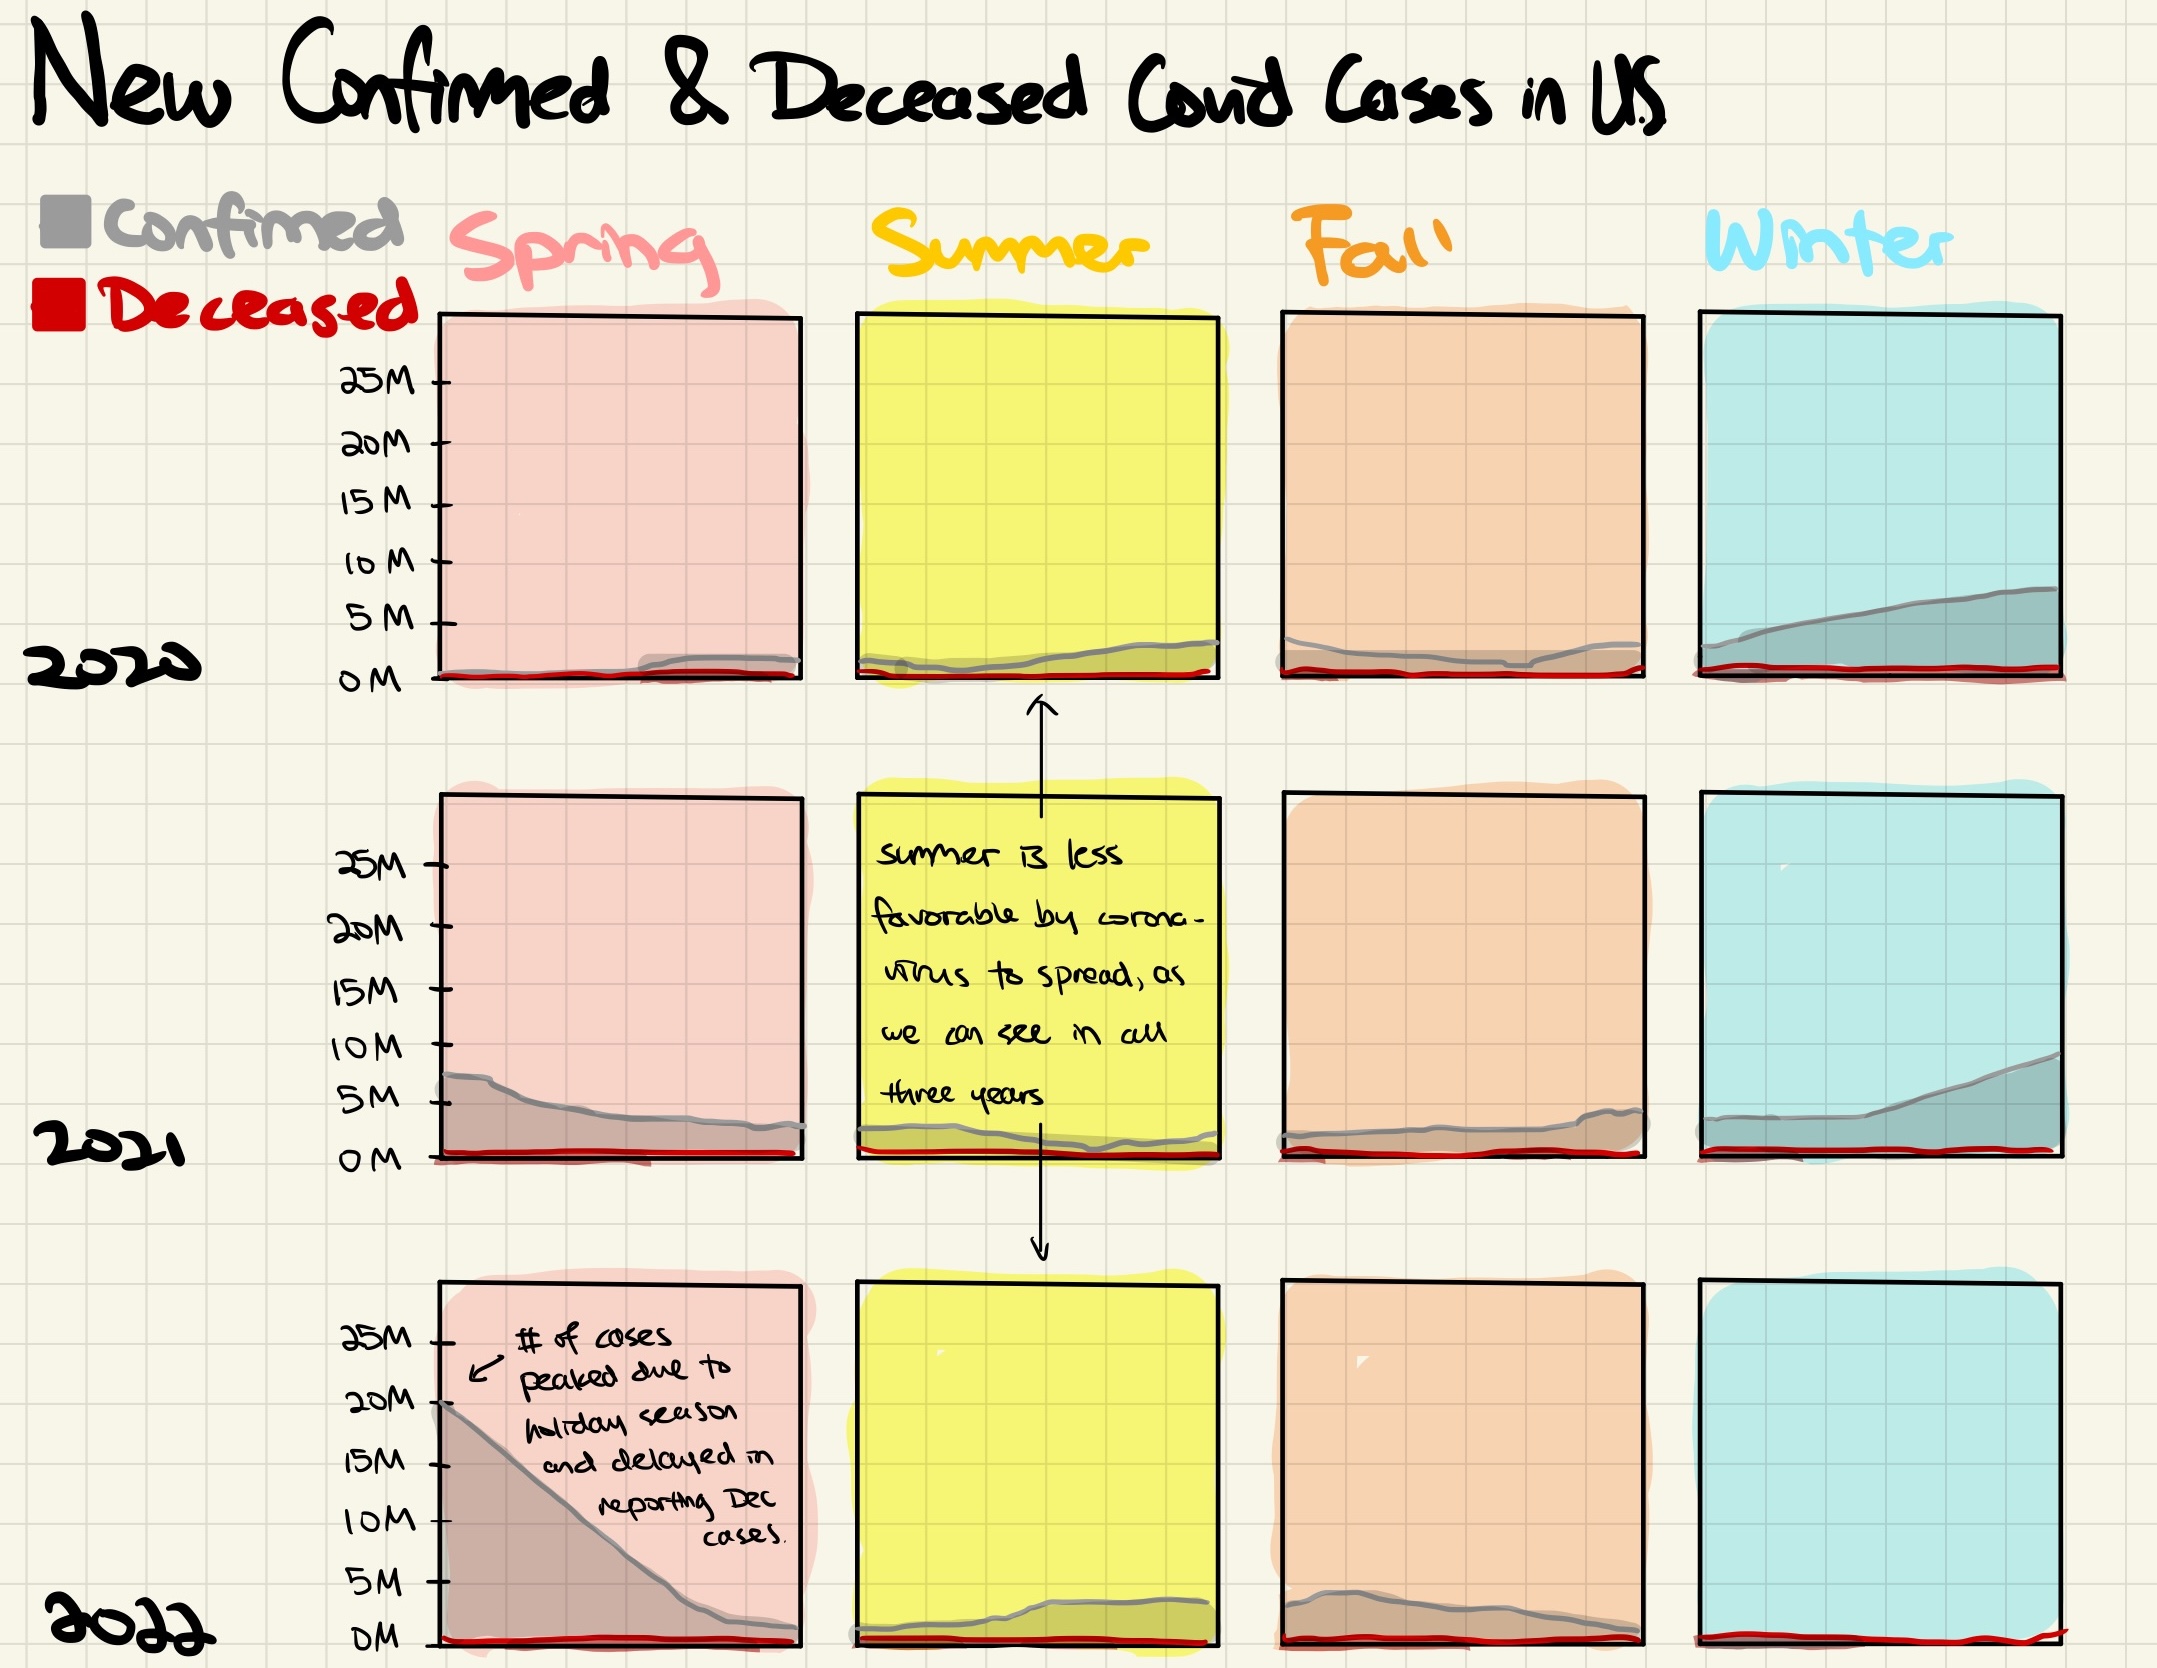 New Confirmed & Deceased Covid Cases in U.S
Confirmed
Deceased
Spring
Summer
Fall
Winter
25M
20M
15M
10M
5M
0M
2020
25M
20M
15M
10M
5M
0M
2021
summer is less
favorable by corona-
virus to spread, as
we can see in all
three years
25M
20M
15M
10M
5M
0M
2022
# of cases
peaked due to
holiday season
and delayed in
reporting Dec
cases.